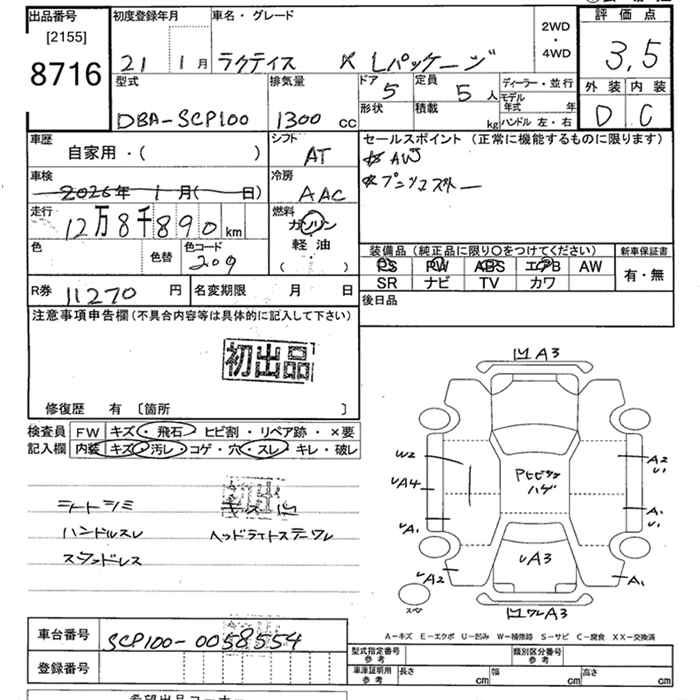 出品番号
[2155]
8716
初度登録年月
21 1月
車名・グレード
ラクティス X Lパッケージ
2WD
・
4WD
評価点
3,5
外装 内装
D C
型式
DBA-SCP100
排気量
1300 cc
ドア 5
形状
定員 5 人
積載 kg
ディーラー・並行
モデル年式 年
ハンドル 左・右
車歴
自家用・( )
車検
2026年 1月( 日)
走行
12万8千890 km
色
色替
色コード
209
シフト
AT
冷房
AAC
燃料
ガソリン
軽油
( )
R券 11270 円
名変期限 月 日
セールスポイント(正常に機能するものに限ります)
AW
装備品(純正品に限り○をつけてください)
PS PW ABS エアB AW
SR ナビ TV カワ
新車保証書
有・無
後日品
注意事項申告欄(不具合内容等は具体的に記入して下さい)
初出品
修復歴 有 〔箇所 〕
検査員記入欄
FW キズ・飛石・ヒビ割・リペア跡・×要
内装 キズ・汚レ・コゲ・穴・スレ・キレ・破レ
シートシミ
ハンドルスレ
スタッドレス
ヘッドライトステーワレ
凹A3
W2
UA4
UA1
UA2
Pヒビ
ハゲ
UA3
A2
U1
A1
U1
A1
凹ワレA3
スペア
A-キズ E-エクボ U-凹み W-補修跡 S-サビ C-腐食 XX-交換済
車台番号 SCP100-0058554
登録番号
型式指定番号
参考
類別区分番号
参考
車庫証明用
参考
長さ cm
幅 cm
高さ cm